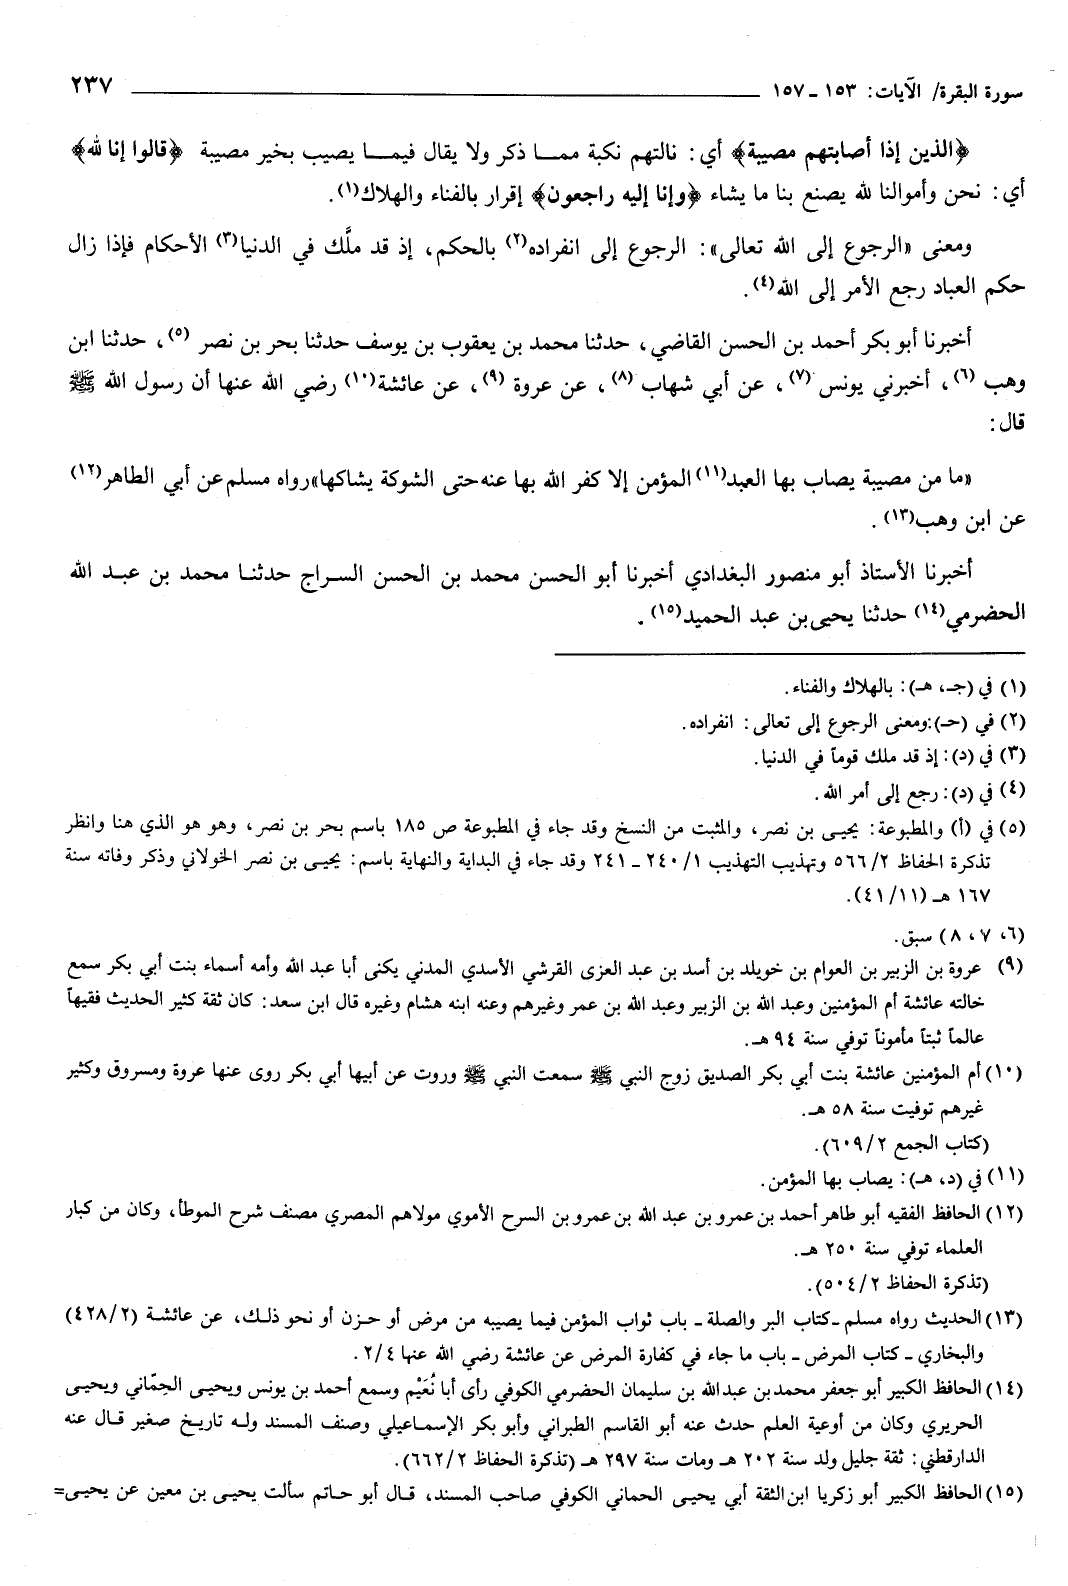 سورة البقرة/ الآيات: ١٥٣ ـ ١٥٧ ٢٣٧
﴿الذين إذا أصابتهم مصيبة﴾ أي: نالتهم نكبة ممـا ذكر ولا يقال فيمـا يصيب بخير مصيبة ﴿قالوا إنا لله﴾
أي: نحن وأموالنا لله يصنع بنا ما يشاء ﴿وإنا إليه راجعون﴾ إقرار بالفناء والهلاك(١).
ومعنى «الرجوع إلى الله تعالى»: الرجوع إلى انفراده(٢) بالحكم، إذ قد ملَّك في الدنيا(٣) الأحكام فإذا زال
حكم العباد رجع الأمر إلى الله(٤).
أخبرنا أبو بكر أحمد بن الحسن القاضي، حدثنا محمد بن يعقوب بن يوسف حدثنا بحر بن نصر (٥)، حدثنا ابن
وهب (٦)، أخبرني يونس (٧)، عن أبي شهاب (٨)، عن عروة (٩)، عن عائشة(١٠) رضي الله عنها أن رسول الله ﷺ
قال:
«ما من مصيبة يصاب بها العبد(١١) المؤمن إلا كفر الله بها عنه حتى الشوكة يشاكها» رواه مسلم عن أبي الطاهر(١٢)
عن ابن وهب(١٣).
أخبرنا الأستاذ أبو منصور البغدادي أخبرنا أبو الحسن محمد بن الحسن السـراج حدثنـا محمد بن عبـد الله
الحضرمي(١٤) حدثنا يحيى بن عبد الحميد(١٥).
(١) في (جـ، هـ): بالهلاك والفناء.
(٢) في (حـ):ومعنى الرجوع إلى تعالى: انفراده.
(٣) في (د): إذ قد ملك قوماً في الدنيا.
(٤) في (د): رجع إلى أمر الله.
(٥) في (أ) والمطبوعة: يحيـى بن نصر، والمثبت من النسخ وقد جاء في المطبوعة ص ١٨٥ باسم بحر بن نصر، وهو هو الذي هنا وانظر
تذكرة الحفاظ ٢/ ٥٦٦ وتهذيب التهذيب ١/ ٢٤٠ ـ ٢٤١ وقد جاء في البداية والنهاية باسم: يحيـى بن نصر الخولاني وذكر وفاته سنة
١٦٧ هـ (١١/ ٤١).
(٦، ٧، ٨) سبق.
(٩) عروة بن الزبير بن العوام بن خويلد بن أسد بن عبد العزى القرشي الأسدي المدني يكنى أبا عبد الله وأمه أسماء بنت أبي بكر سمع
خالته عائشة أم المؤمنين وعبد الله بن الزبير وعبد الله بن عمر وغيرهم وعنه ابنه هشام وغيره قال ابن سعد: كان ثقة كثير الحديث فقيهاً
عالماً ثبتاً مأموناً توفي سنة ٩٤ هـ.
(١٠) أم المؤمنين عائشة بنت أبي بكر الصديق زوج النبي ﷺ سمعت النبي ﷺ وروت عن أبيها أبي بكر روى عنها عروة ومسروق وكثير
غيرهم توفيت سنة ٥٨ هـ.
(كتاب الجمع ٢/ ٦٠٩).
(١١) في (د، هـ): يصاب بها المؤمن.
(١٢) الحافظ الفقيه أبو طاهر أحمد بن عمرو بن عبد الله بن عمرو بن السرح الأموي مولاهم المصري مصنف شرح الموطأ، وكان من كبار
العلماء توفي سنة ٢٥٠ هـ.
(تذكرة الحفاظ ٢/ ٥٠٤).
(١٣) الحديث رواه مسلم ـ كتاب البر والصلة ـ باب ثواب المؤمن فيما يصيبه من مرض أو حـزن أو نحو ذلـك، عن عائشـة (٢/ ٤٢٨)
والبخاري ـ كتاب المرض ـ باب ما جاء في كفارة المرض عن عائشة رضي الله عنها ٤/ ٢.
(١٤) الحافظ الكبير أبو جعفر محمد بن عبد الله بن سليمان الحضرمي الكوفي رأى أبا نُعَيْم وسمع أحمد بن يونس ويحيـى الحِمّاني ويحيـى
الحريري وكان من أوعية العلم حدث عنه أبو القاسم الطبراني وأبو بكر الإسمـاعيلي وصنف المسند ولـه تاريـخ صغير قـال عنه
الدارقطني: ثقة جليل ولد سنة ٢٠٢ هـ ومات سنة ٢٩٧ هـ (تذكرة الحفاظ ٢/ ٦٦٢).
(١٥) الحافظ الكبير أبو زكريا ابن الثقة أبي يحيـى الحماني الكوفي صاحب المسند، قـال أبو حـاتم سألت يحيـى بن معين عن يحيـى=